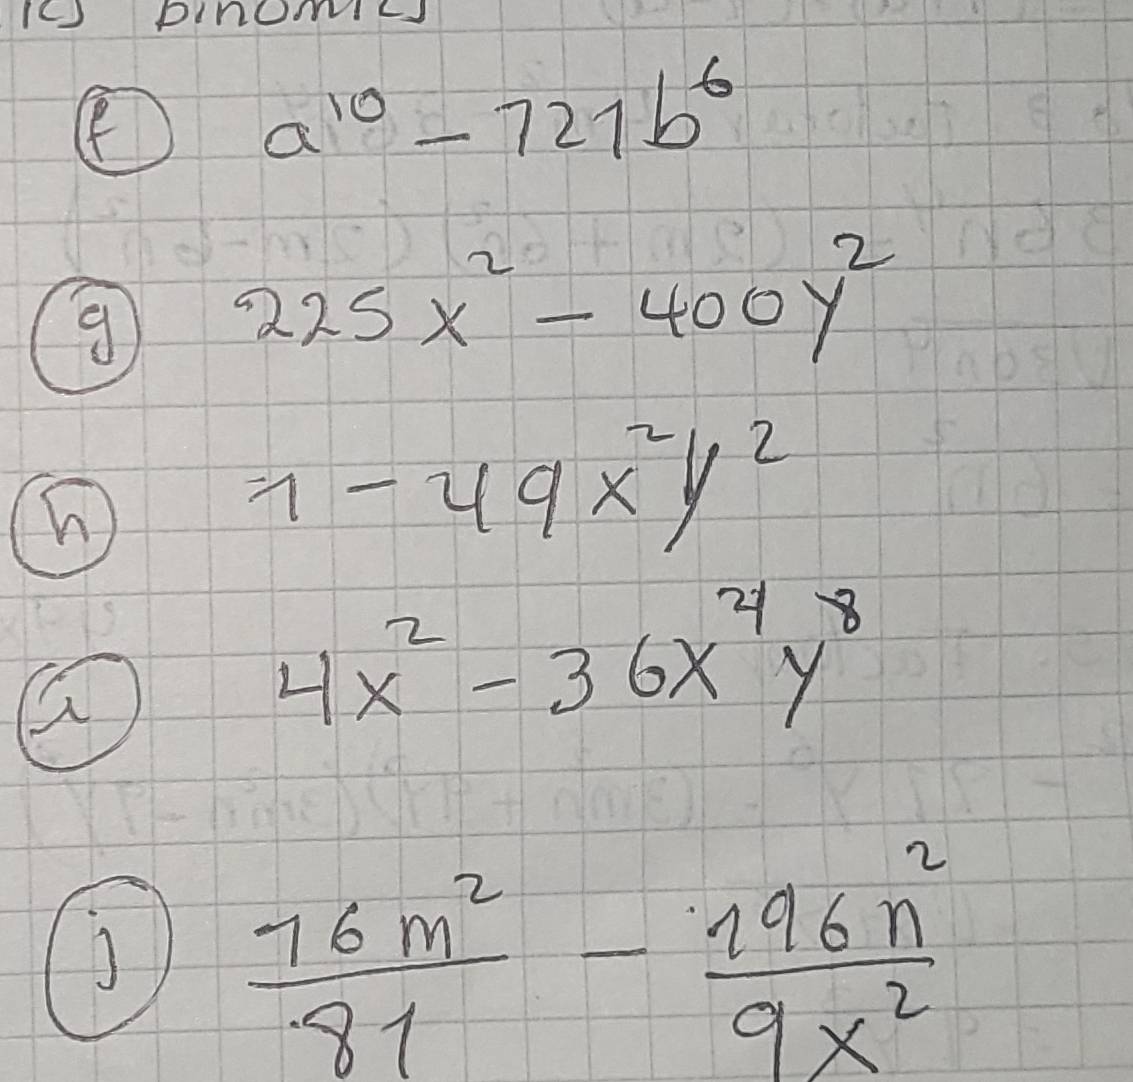 binomios
f a¹⁰ - 121b⁶
g 225x² - 400y²
h 1 - 49x²y²
i 4x² - 36x⁴y⁸
j 16m²/81 - 196n²/9x²